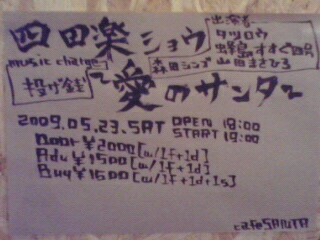 四田楽ショウ
出演者
タツロウ
蝉島すすぐ四号
森田シンプ
山田まさひろ
music charge
投げ銭
〜愛のサンタ〜
2009.05.23.SAT OPEN 18:00
START 19:00
Door ¥2000[w/1f+1d]
Adv ¥1500[w/1f+1d]
Buy ¥1600[w/1f+1d+1s]
cafe SALUTA